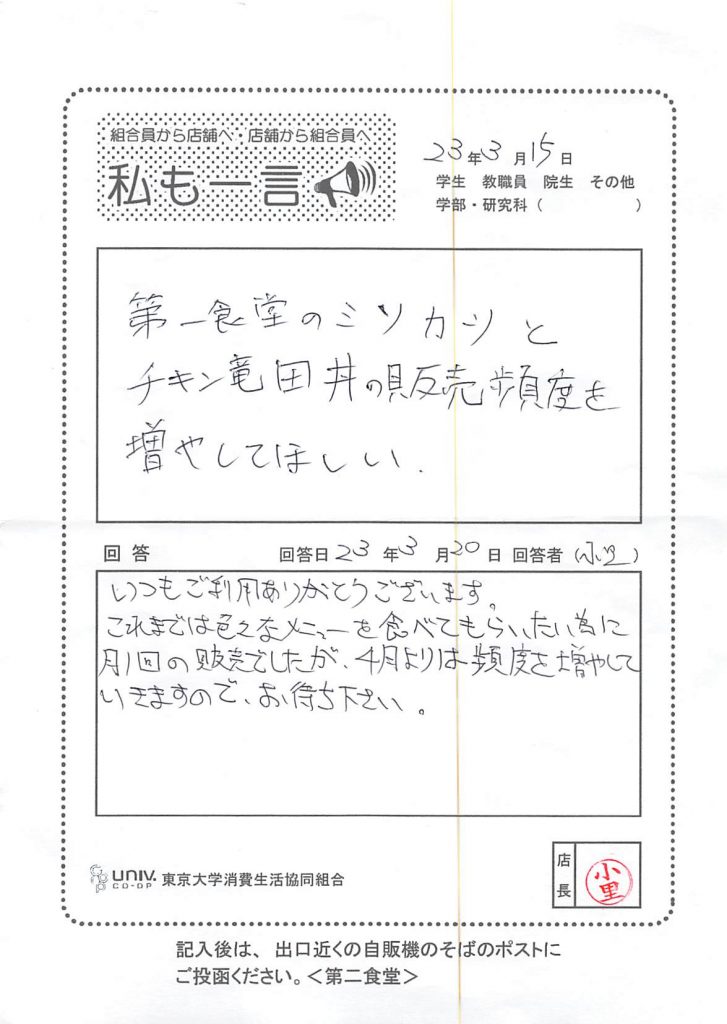 組合員から店舗へ・店舗から組合員へ
私も一言
23年3月15日
学生 教職員 院生 その他
学部・研究科( )
第一食堂のミソカツと
チキン竜田丼の販売頻度を
増やしてほしい.
回答 回答日23年3月20日 回答者(小里)
いつもご利用ありがとうございます。
これまでは色々なメニューを食べてもらいたい為に
月1回の販売でしたが、4月よりは頻度を増やして
いきますので、お待ち下さい。
UNIV. CO-OP 東京大学消費生活協同組合
店長 小里
記入後は、出口近くの自販機のそばのポストに
ご投函ください。<第二食堂>